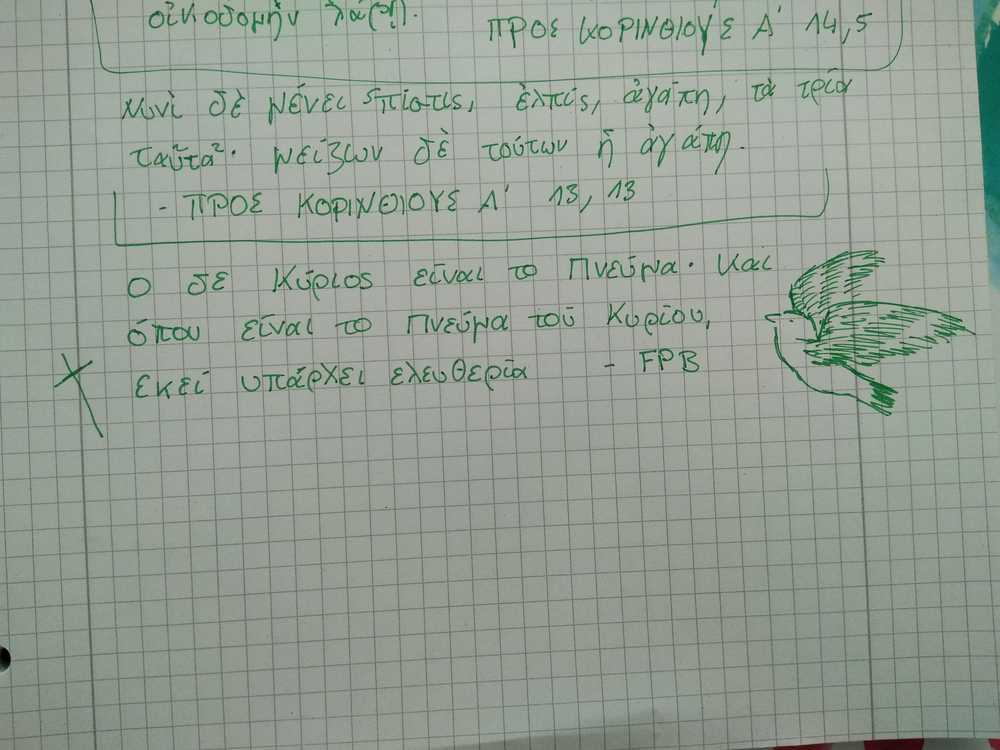 οἰκοδομὴν λάβῃ.
ΠΡΟΣ ΚΟΡΙΝΘΙΟΥΣ Α' 14,5
Νυνὶ δὲ μένει πίστις, ἐλπίς, ἀγάπη, τὰ τρία
ταῦτα· μείζων δὲ τούτων ἡ ἀγάπη.
- ΠΡΟΣ ΚΟΡΙΝΘΙΟΥΣ Α' 13, 13
Ο δε Κύριος είναι το Πνεύμα· και
όπου είναι το Πνεύμα του Κυρίου,
εκεί υπάρχει ελευθερία - FPB